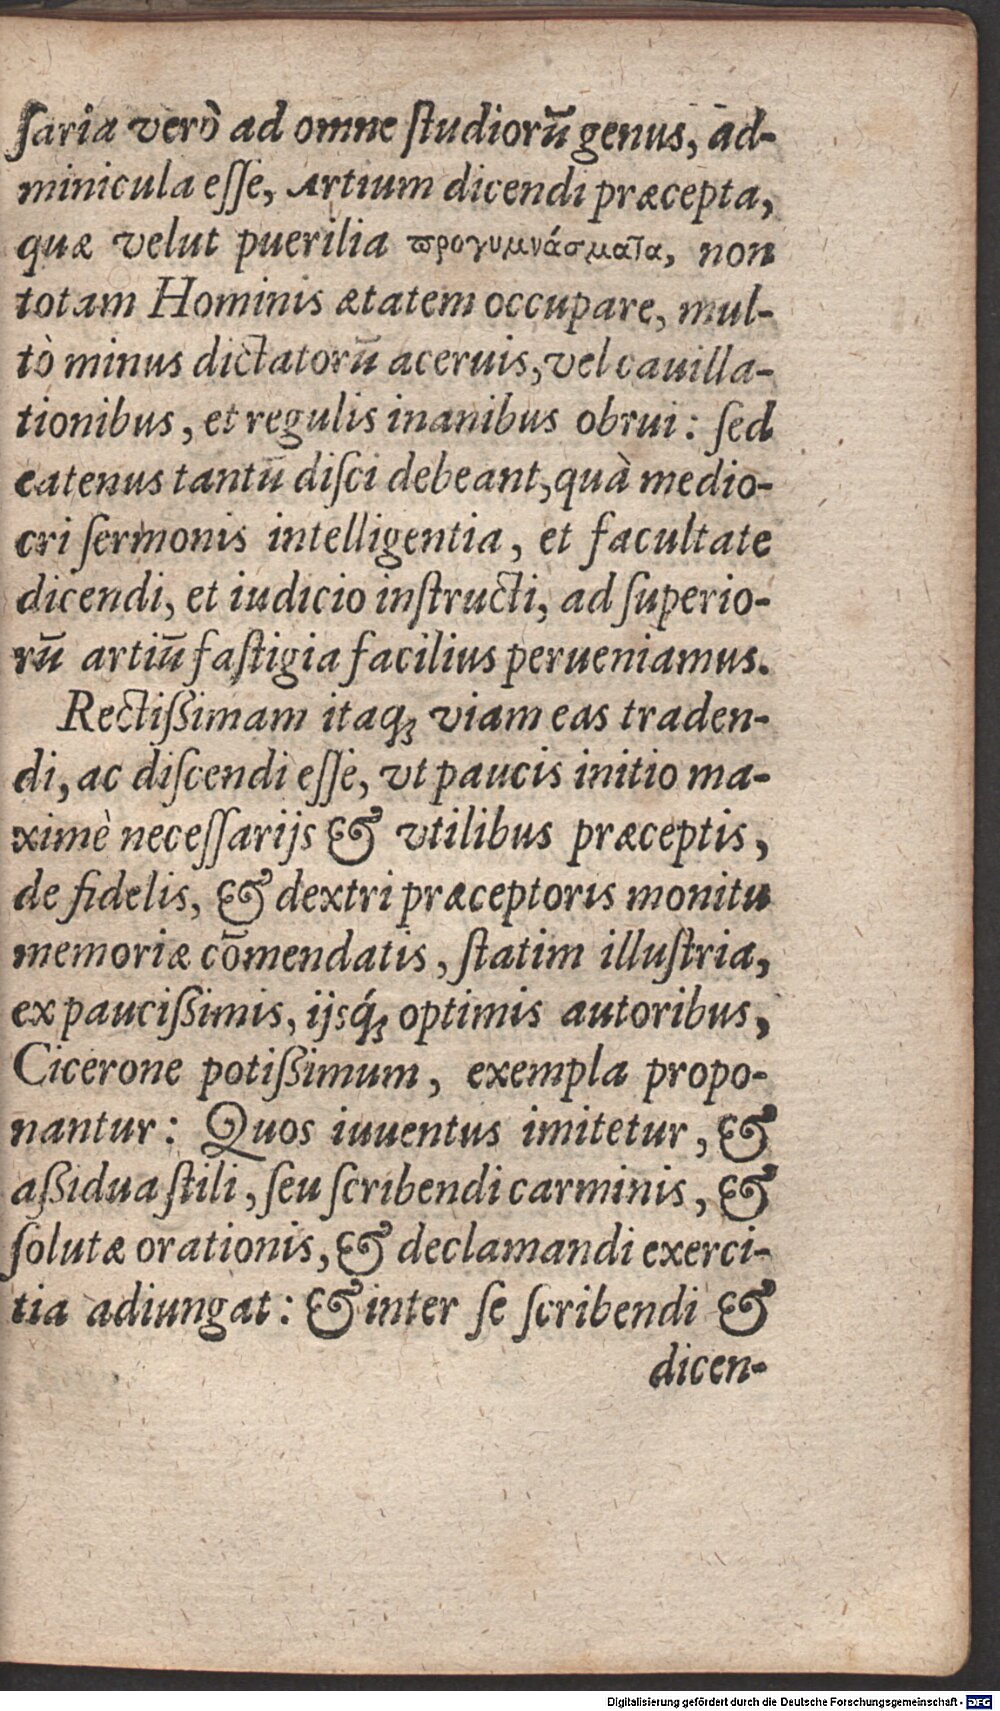 ſaria verò ad omne ſtudiorū genus, ad-
minicula eſſe, Artium dicendi præcepta,
quæ velut puerilia ϖρογυμνάσματα, non
totam Hominis ætatem occupare, mul-
tò minus dictatorū aceruis, vel cauilla-
tionibus, et regulis inanibus obrui: ſed
eatenus tantū diſci debeant, quà medio-
cri ſermonis intelligentia, et facultate
dicendi, et iudicio inſtructi, ad ſuperio-
rū artiū faſtigia facilius perueniamus.
Rectißimam itaq́ꝫ viam eas traden-
di, ac diſcendi eſſe, vt paucis initio ma-
ximè neceſſarijs & vtilibus præceptis,
de fidelis, & dextri præceptoris monitu
memoriæ cōmendatis, ſtatim illuſtria,
ex paucißimis, ijsq́ꝫ optimis autoribus,
Cicerone potißimum, exempla propo-
nantur: Quos iuuentus imitetur, &
aßidua ſtili, ſeu ſcribendi carminis, &
ſolutæ orationis, & declamandi exerci-
tia adiungat: & inter ſe ſcribendi &
dicen-
Digitalisierung gefördert durch die Deutsche Forschungsgemeinschaft - DFG